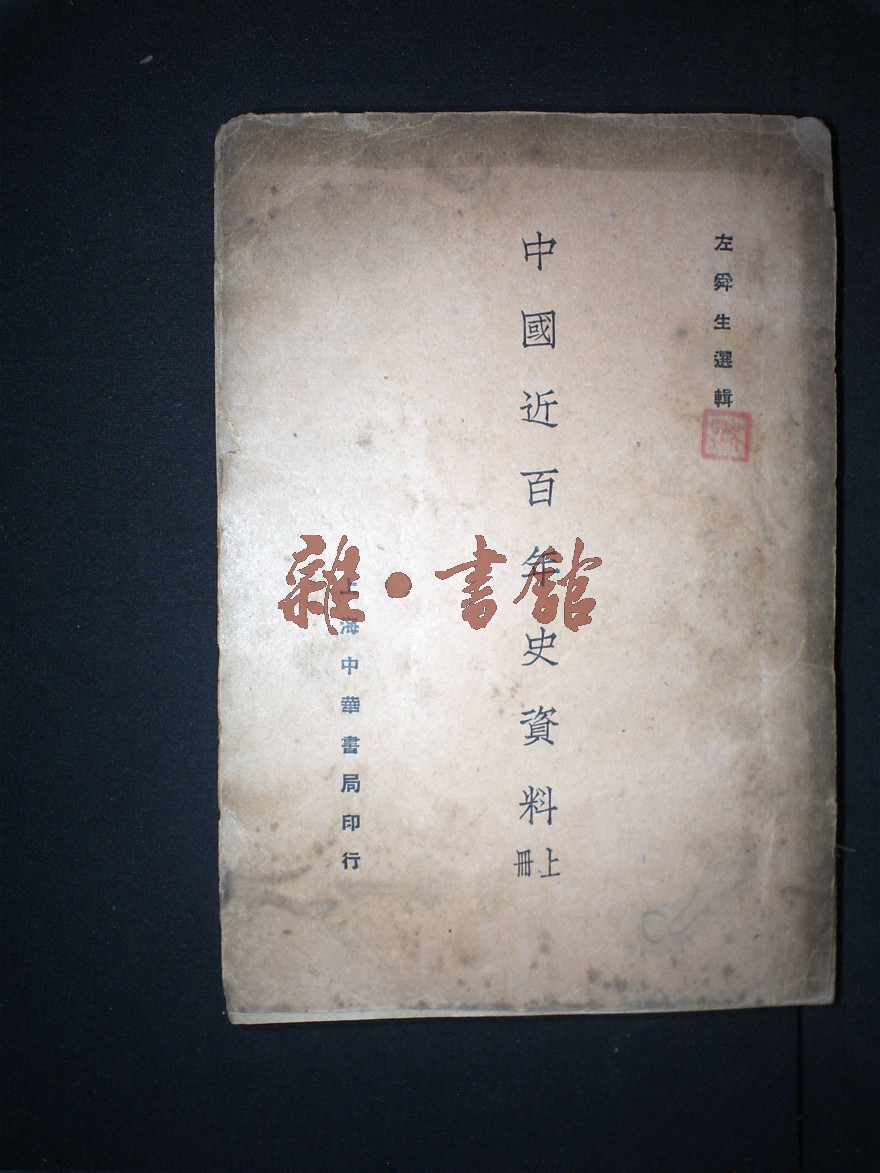 左舜生選輯
中國近百年史資料
上冊
上海中華書局印行
雜·書館